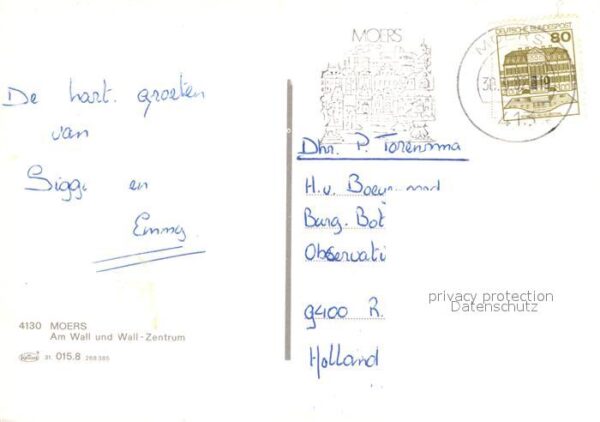 MOERS
DEUTSCHE BUNDESPOST
80
MOERS
De hart. groeten
van
Siggi en
Emmy.
Dhr. P. Torensma
H.v.
Burg. Bot
Observati
9400 R.
Holland
privacy protection
Datenschutz
4130 MOERS
Am Wall und Wall-Zentrum
31 015.8 268 385